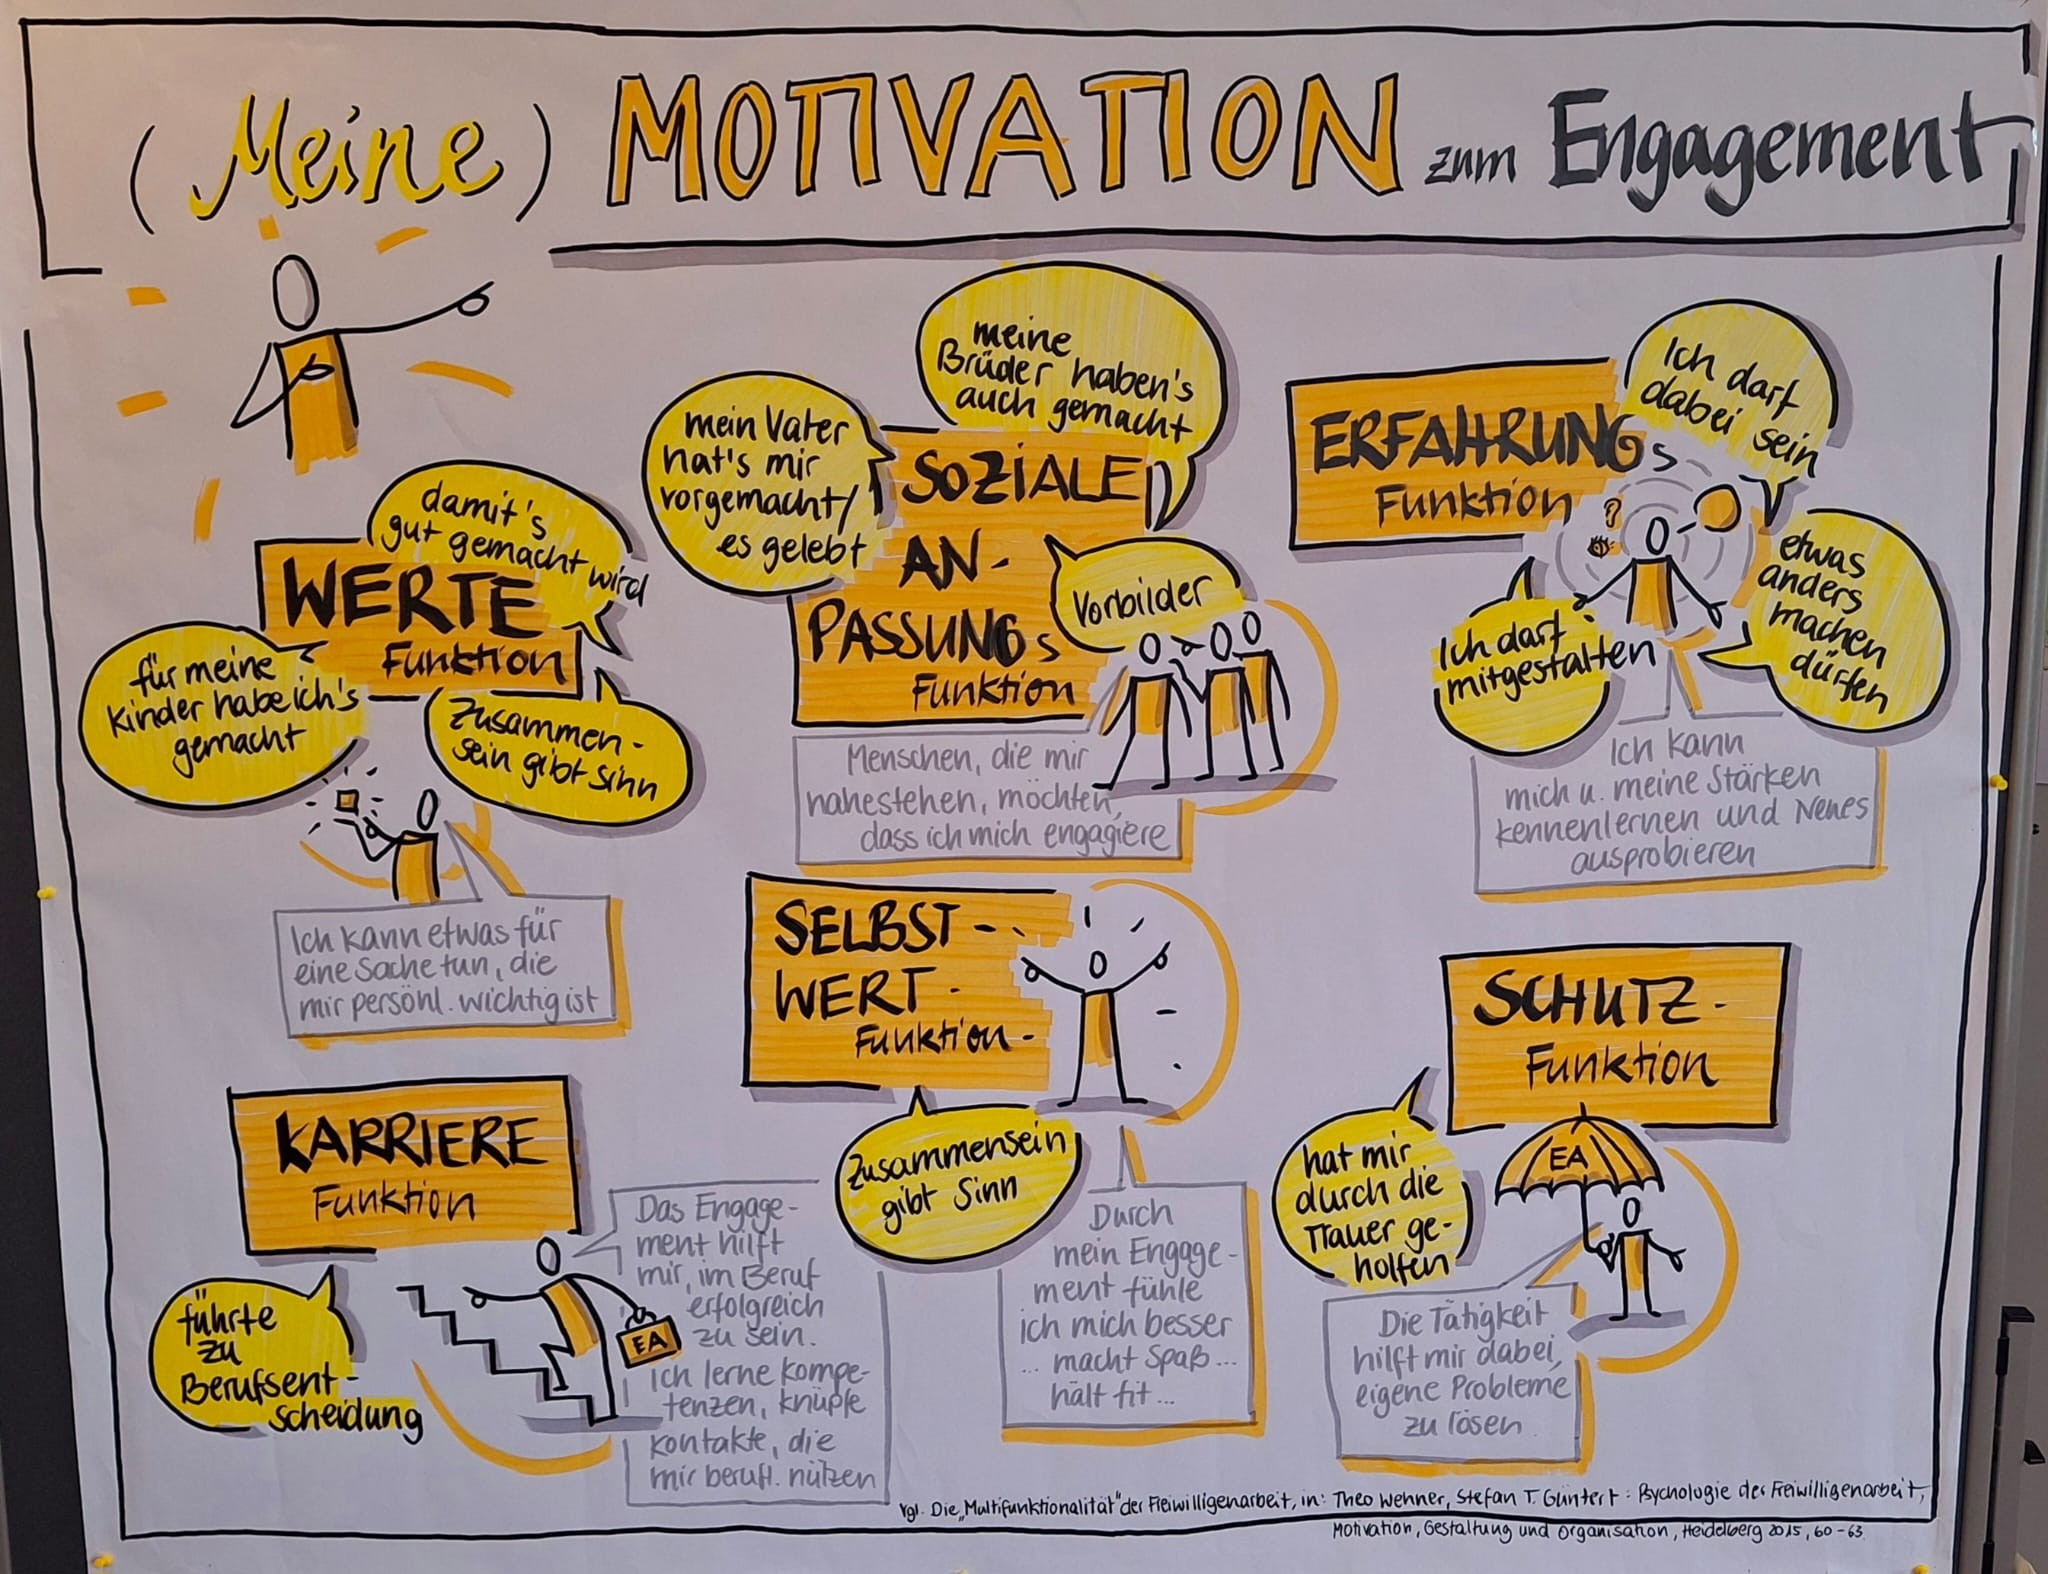 (Meine) MOTIVATION zum Engagement
WERTE
Funktion
damit's
gut gemacht wird
für meine
Kinder habe ich's
gemacht
Zusammen-
sein gibt Sinn
Ich kann etwas für
eine Sache tun, die
mir persönl. wichtig ist
SOZIALE
AN-
PASSUNGS
Funktion
mein Vater
hat's mir
vorgemacht/
es gelebt
meine
Brüder haben's
auch gemacht
Vorbilder
Menschen, die mir
nahestehen, möchten,
dass ich mich engagiere
ERFAHRUNGS
Funktion
Ich darf
dabei sein
?
etwas
anders
machen
dürfen
Ich darf
mitgestalten
Ich kann
mich u. meine Stärken
kennenlernen und Neues
ausprobieren
KARRIERE
Funktion
führte
zu
Berufsent-
scheidung
EA
Das Engage-
ment hilft
mir, im Beruf
erfolgreich
zu sein.
Ich lerne Kompe-
tenzen, knüpfe
Kontakte, die
mir berufl. nützen
SELBST-
WERT-
Funktion-
Zusammensein
gibt Sinn
Durch
mein Engage-
ment fühle
ich mich besser
... macht Spaß...
hält fit...
SCHUTZ-
Funktion
hat mir
durch die
Trauer ge-
holfen
EA
Die Tätigkeit
hilft mir dabei,
eigene Probleme
zu lösen
vgl. Die „Multifunktionalität" der Freiwilligenarbeit, in: Theo Wehner, Stefan T. Güntert: Psychologie der Freiwilligenarbeit,
Motivation, Gestaltung und Organisation, Heidelberg 2015, 60-63